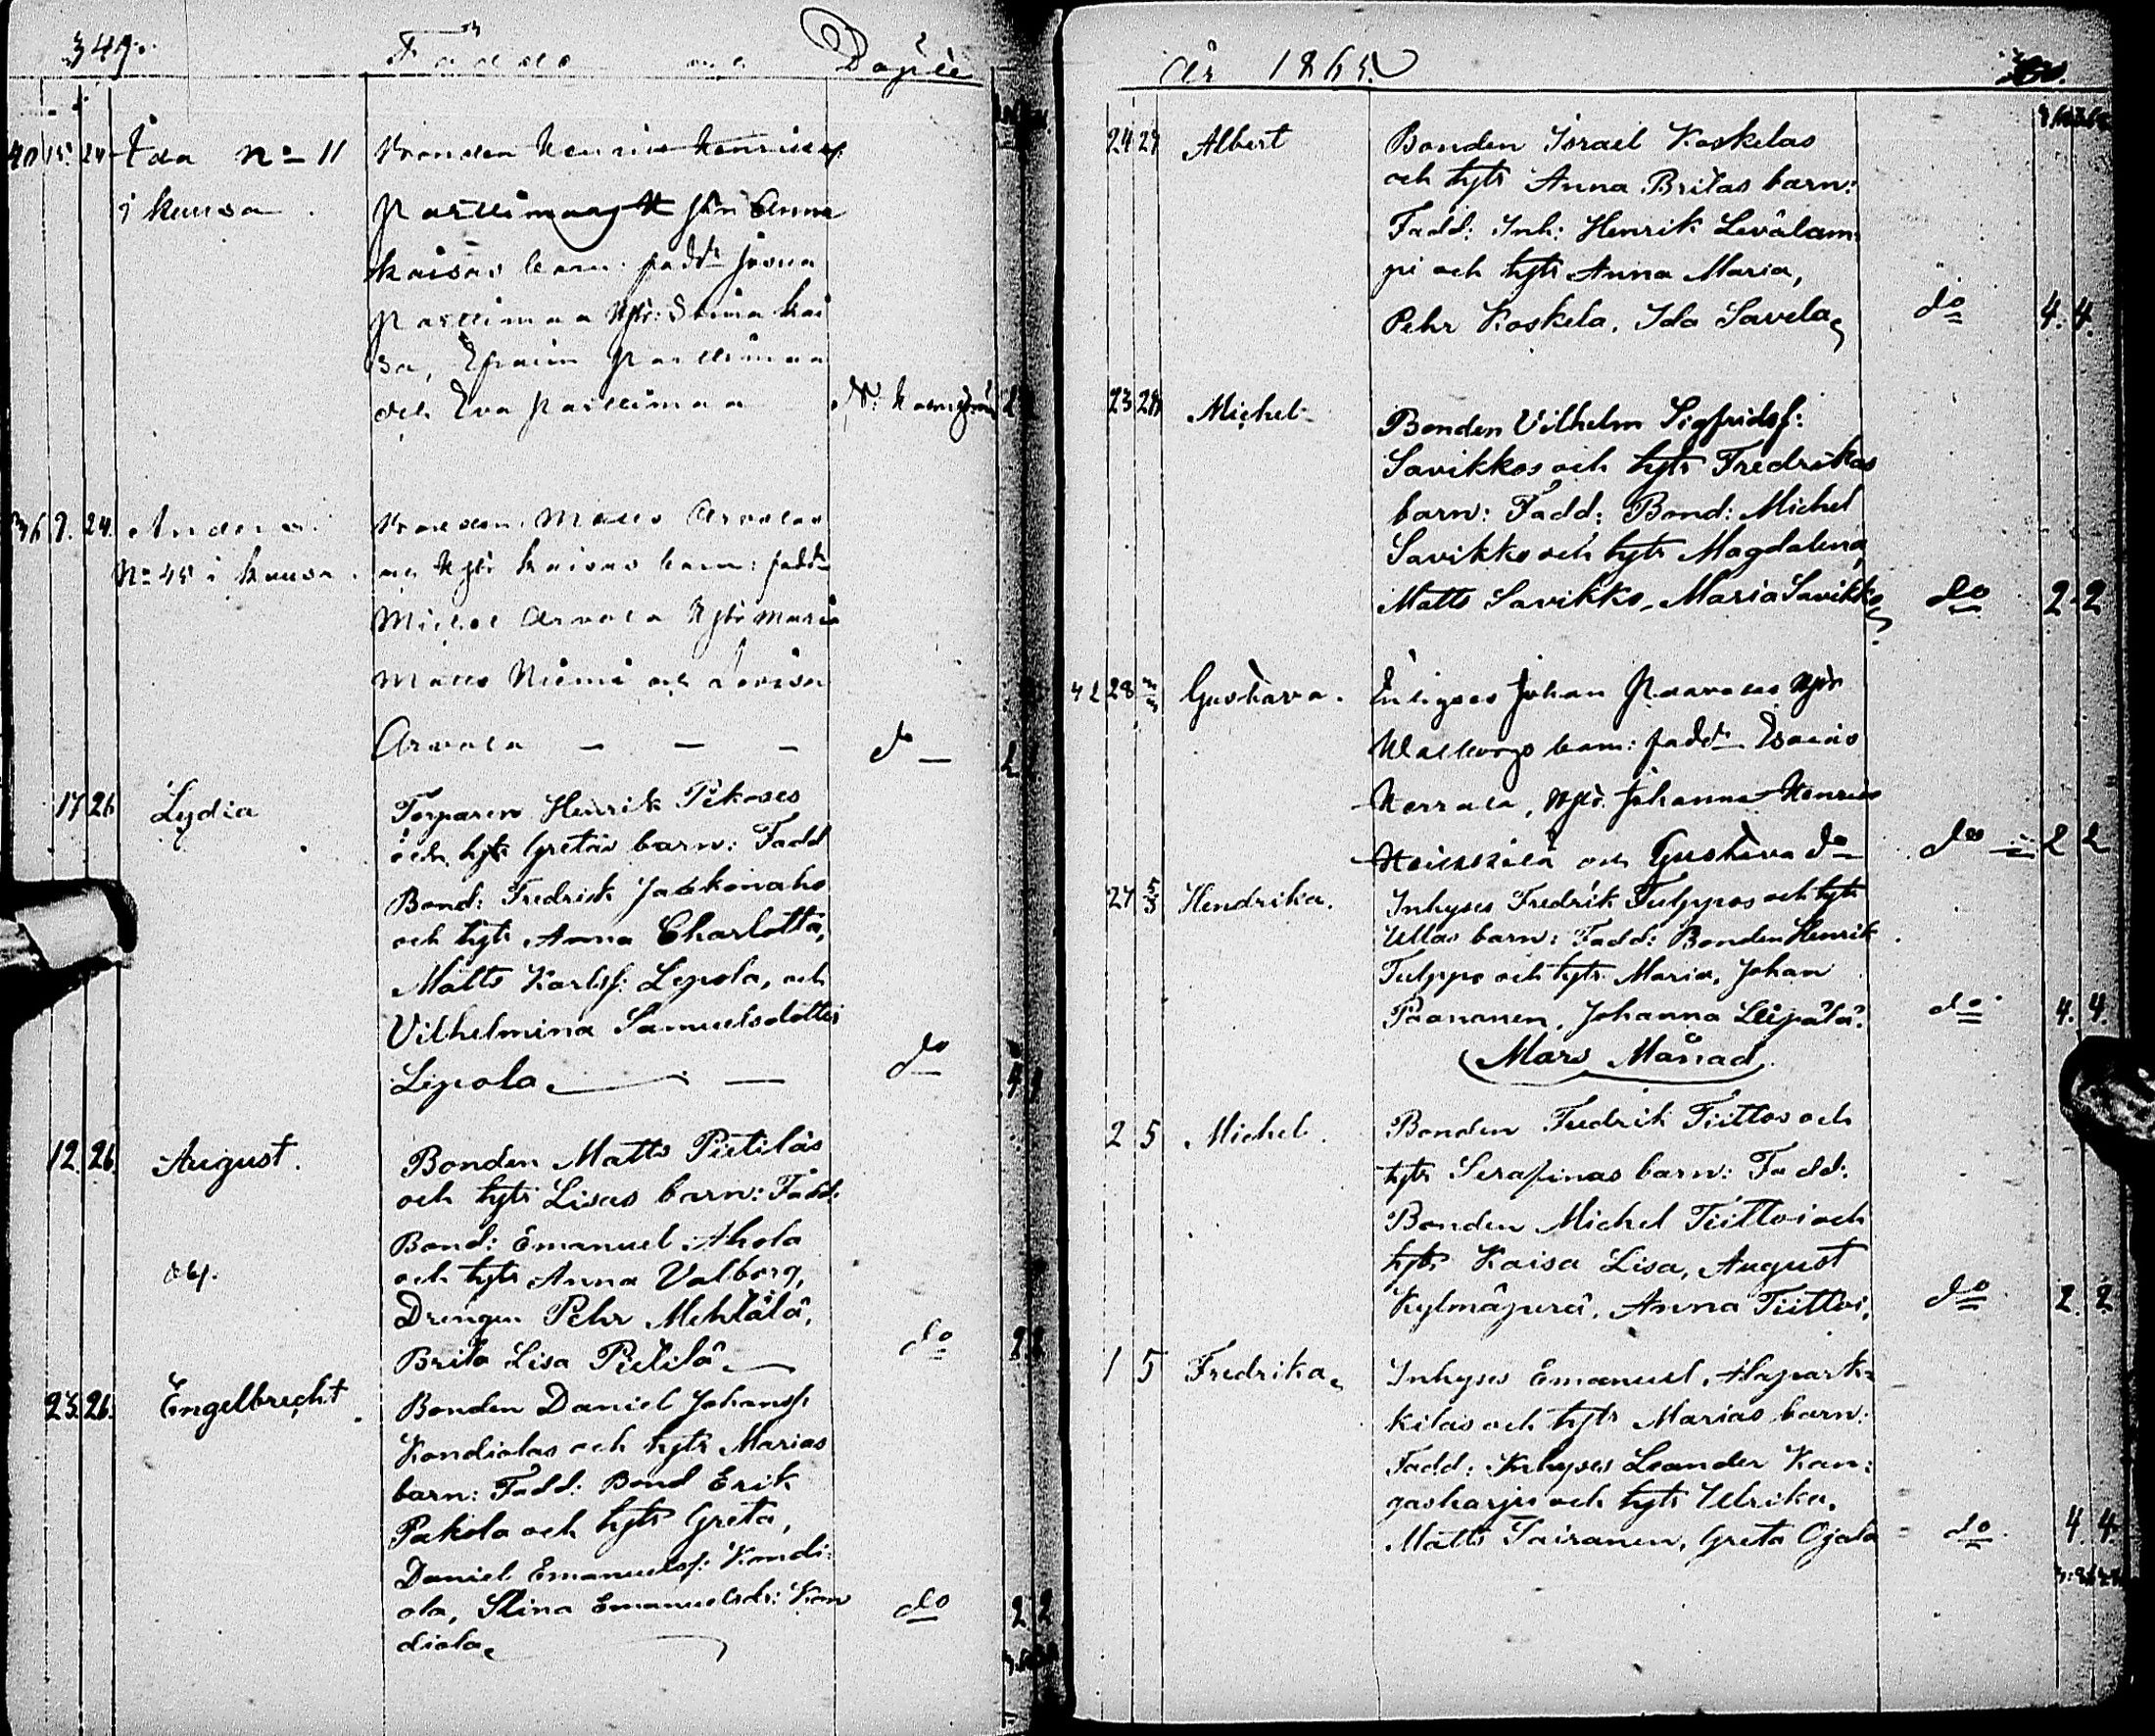 349.
Födde och Döpte
40 15. 24 Ida No 11
i Kausa.
Bonden Henric Henricss:
Passimaas H hu Anna
Kaisas barn: fadd: Josua
Passimaa Hjlr: Stina Kai
sa, Efraim Passimaa
och Eva Passimaa
36 9. 24. Anders
No 45 i Kausa.
Bonden Matts Arvolas
och Hjlr Kaisas barn: fadd:
Michel Arvola Hjlr Maria
Matts Niemi och Lovisa
Arvola — — — do — 2
17 26 Lydia
Torparen Henrik Pikases
och hjlr Gretas barn: Fadd
Bond: Fredrick Jaskonaho
och hjlr Anna Charlotta,
Matts Karlsf: Lepola, och
Vilhelmina Samuelsdotter
Lepola do
12. 26. August.
Bonden Matts Pietiläs
och hjlr Lisas barn: Fadd:
Bond: Emanuel Ahola
och hjlr Anna Valborg,
Drengen Pehr Mehtälä,
Brita Lisa Pietilä do
23. 26. Engelbrecht
Bonden Daniel Johansf:
Kondiolas och hjlr Marias
barn: Fadd: Bond Erik
Pakola och hjlr Greta,
Daniel Emanuelsf: Kondi:
ola, Stina Emanuelsdr: Kon
diola do 2 2
År 1865.
24 27 Albert
Bonden Israel Koskelas
och hjlr Anna Britas barn:
Fadd: Inh: Henrik Levälam
pi och hjlr Anna Maria,
Pehr Koskela, Ida Savela do 4. 4.
23 28 Michel
Bonden Vilhelm Sigfridsf:
Savikkos och hjlr Fredrikas
barn: Fadd: Bond: Michel
Savikko och hjlr Magdalena,
Matts Savikko, Maria Savikko do 2. 2
42 28 Gustava.
Inhyses Johan Paavolas Hjlr
Walborgs barn: fadd: Esaias
Herrala, Hjlr: Johanna Henric
Heikkilä och Gustava do do 2 2
27 5/3 Hendrika.
Inhyses Fredrik Tulppos och hjlr
Ullas barn: Fadd: Bonden Henrik
Tulppo och hjlr Maria, Johan
Paananen, Johanna Leipälä. do 4. 4.
Mars Månad.
2 5 Michel.
Bonden Fredrik Tiittos och
hjlr Serafinas barn: Fadd:
Bonden Michel Tiittoi och
hjlr Kaisa Lisa, August
Kylmäpurä, Anna Tiittoi, do 2. 2
1 5 Fredrika
Inhyses Emanuel Alapark-
kilas och hjlr Marias barn:
Fadd: Inhyses Leander Kan:
gasharju och hjlr Ulrika,
Matts Tairanen, Greta Ojala do 4. 4.